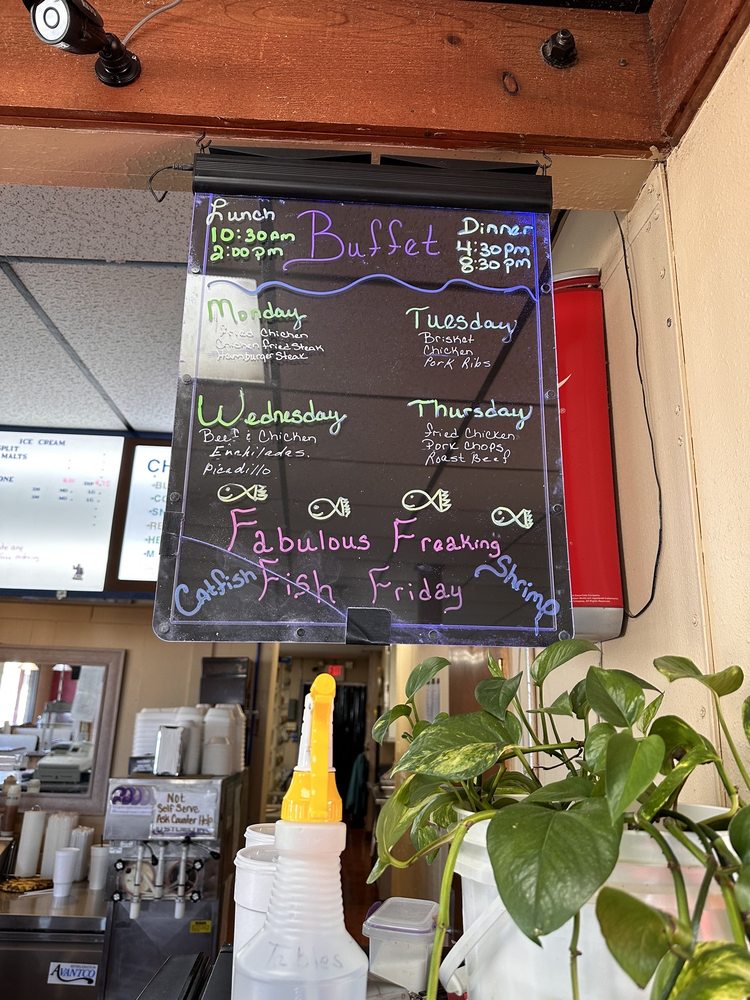 Lunch
10:30am
2:00pm
Buffet
Dinner
4:30pm
8:30pm
Monday
Fried Chicken
Chicken Fried Steak
Hamburger Steak
Tuesday
Brisket
Chicken
Pork Ribs
Wednesday
Beef & Chicken
Enchiladas.
Picadillo
Thursday
Fried Chicken
Pork Chops
Roast Beef
Fabulous Freaking
Fish Friday
Catfish
Shrimp
ICE CREAM
SPLIT
MALTS
CH
Not
Self Serve
Ask Counter Help
AVANTCO